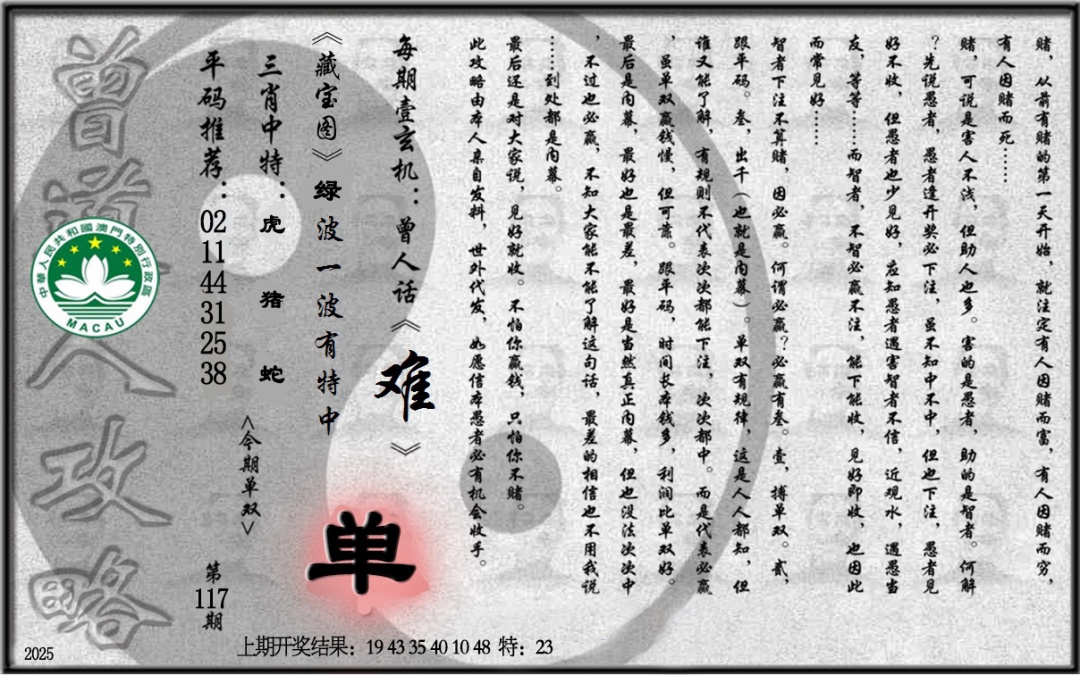 赌，从前有赌的第一天开始，就注定有人因赌而富，有人因赌而穷，
有人因赌而死……
赌，可说是害人不浅，但助人也多。害的是愚者，助的是智者。何解
？先说愚者，愚者逢开奖必下注，虽不知中不中，但也下注，愚者见
好不收，但愚者也少见好，应知愚者遇害智者不信，近观水，遇愚当
友，等等……而智者，不智必赢不注，能下能收，见好即收，也因此
而常见好……
智者下注不算赌，因必赢。何谓必赢？必赢有叁。壹，搏单双。贰，
跟平码。叁，出千（也就是内幕）。单双有规律，这是人人都知，但
谁又能了解，有规则不代表次次都能下注，次次都中。而是代表必赢
，虽单双赢钱慢，但可靠。跟平码，时间长本钱多，利润比单双好。
最后是内幕，最好也是最差，最好是当然真正内幕，但也没法次次中
，不过也必赢，不知大家能不能了解这句话，最差的相信也不用我说
……到处都是内幕。
最后还是对大家说，见好就收。不怕你赢钱，只怕你不赌。
此攻略由本人亲自发料，世外代发，如愿信本愚者必有机会收手。
每期壹玄机：曾人话《难》
《藏宝图》绿波一波有特中
三肖中特：虎 猪 蛇
平码推荐：02 11 44 31 25 38
<今期单双>
单
第117期
曾道人攻略
中華人民共和國澳門特別行政區
MACAU
2025
上期开奖结果：19 43 35 40 10 48 特：23